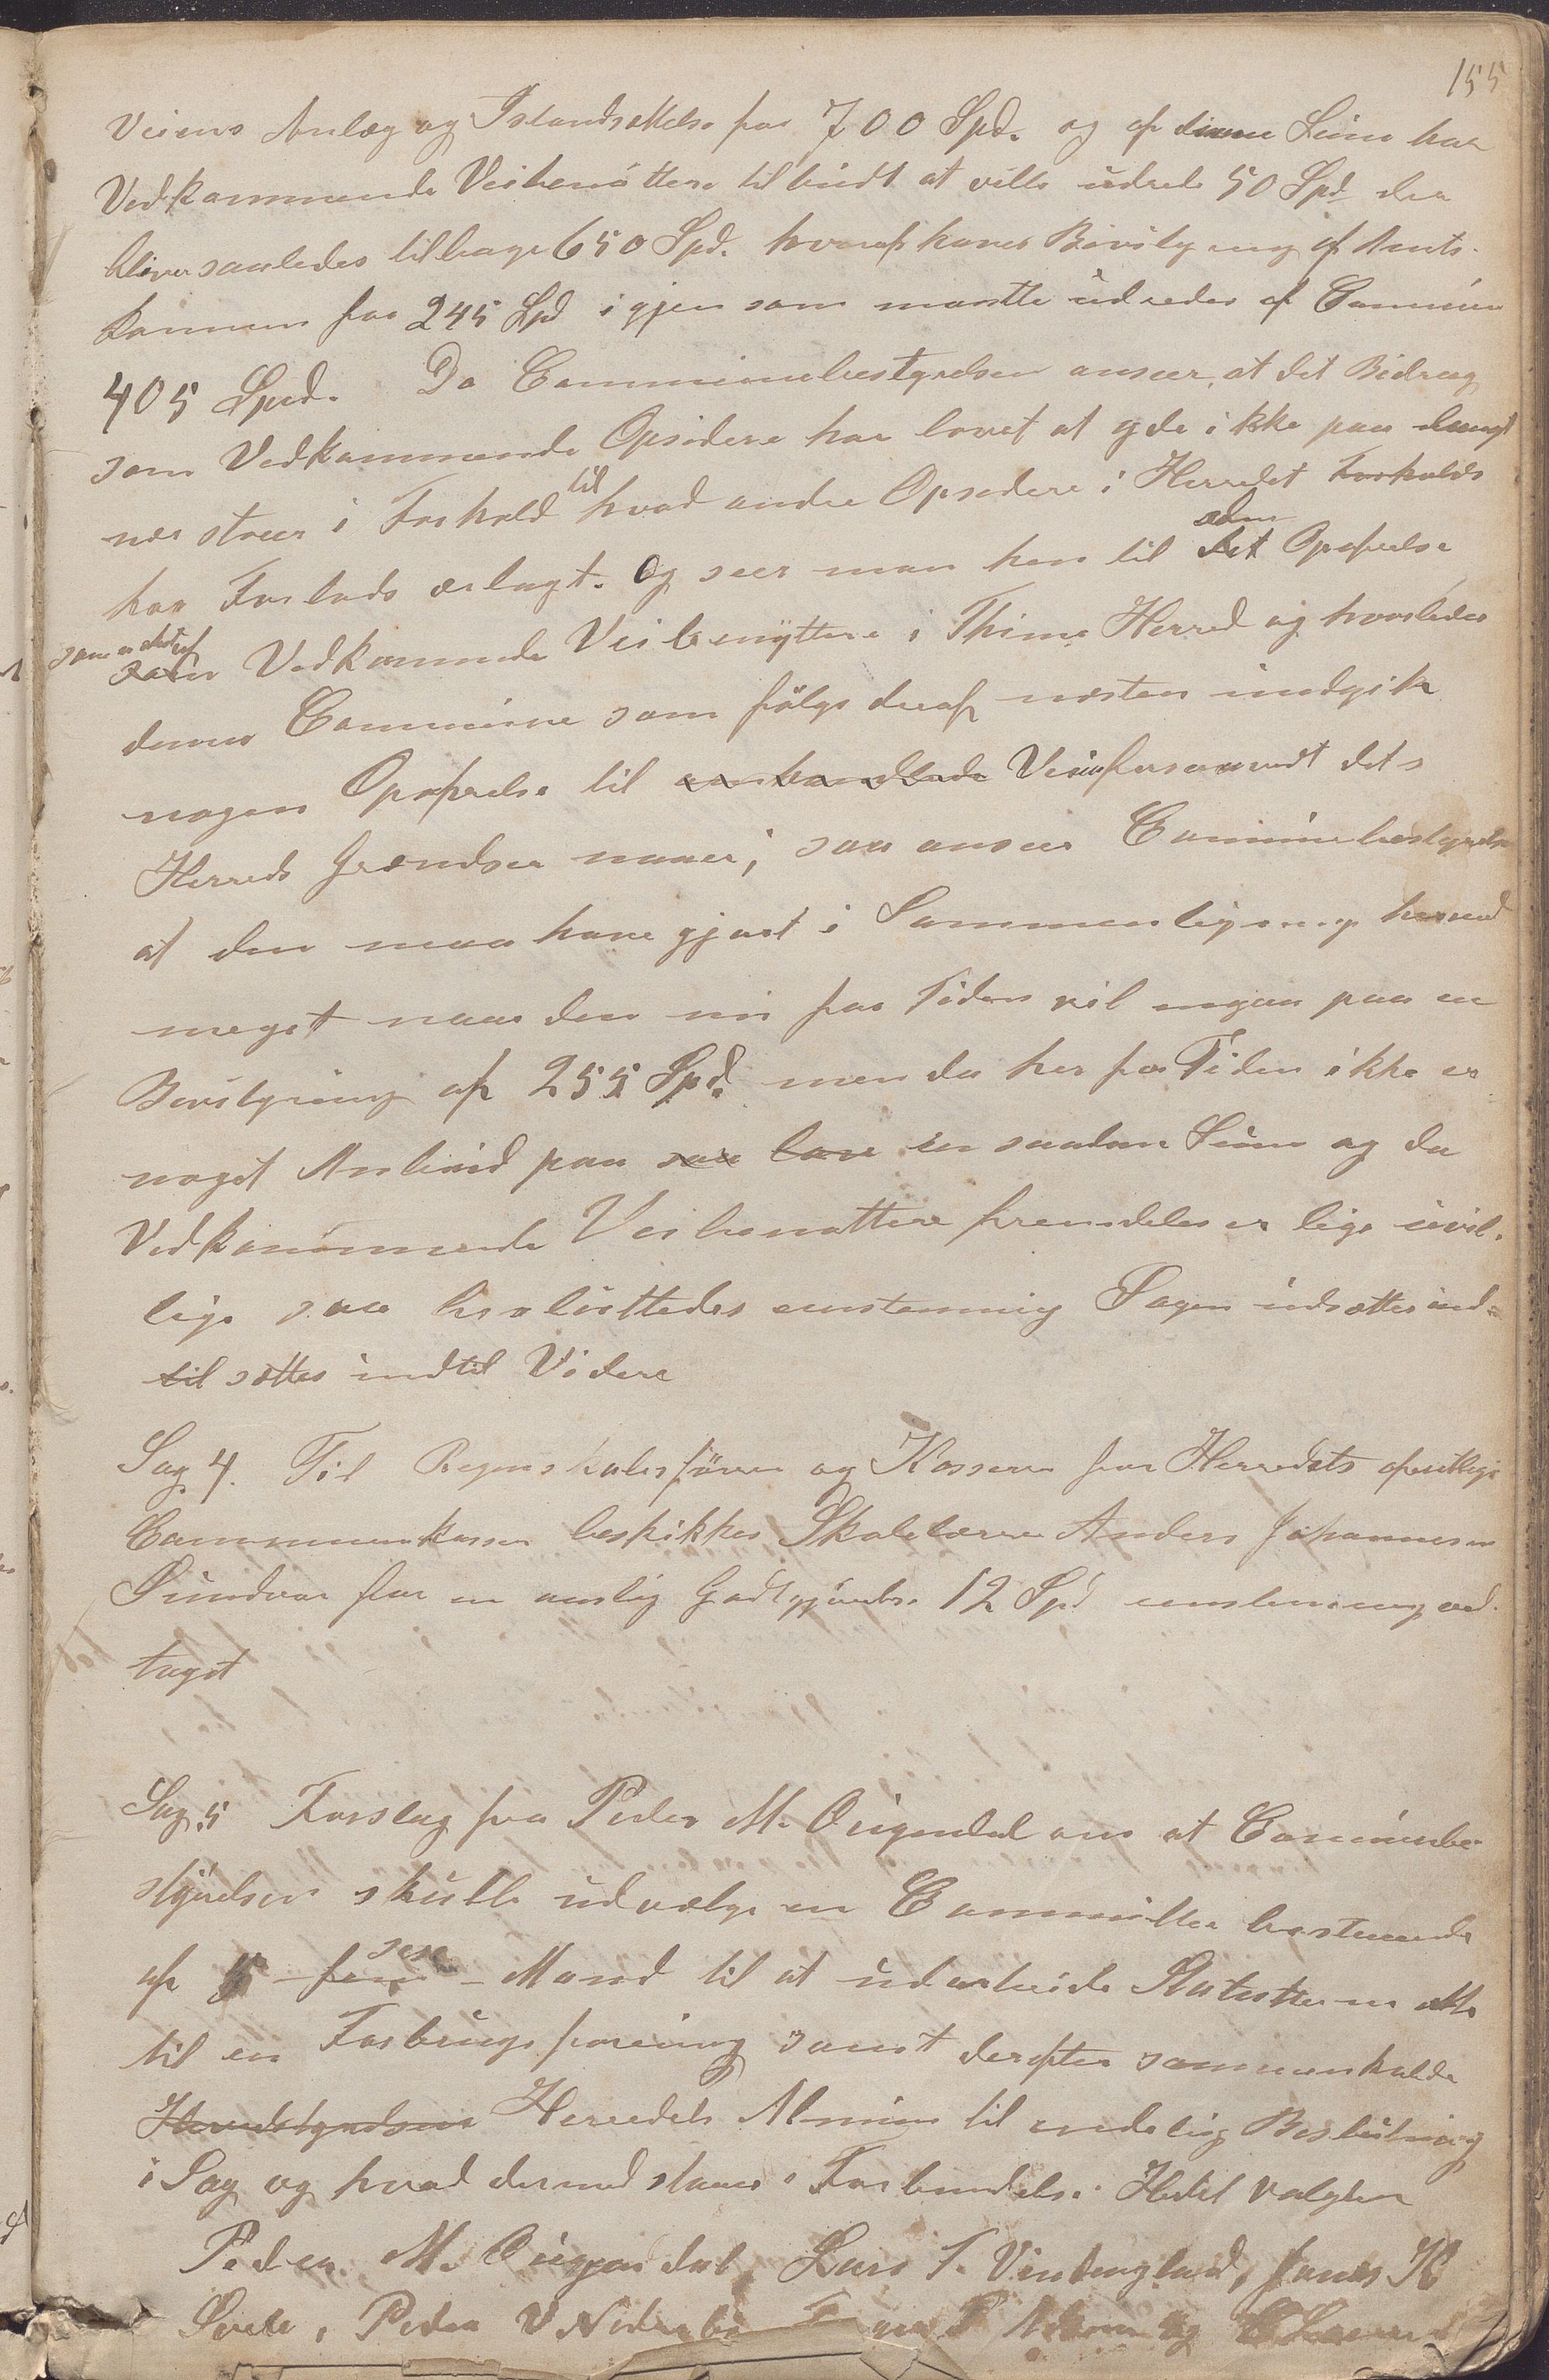 155
Veiens Anlæg og Istandsættelse for 700 Spd. og af denne Sum har
Vedkommende Veibenöttere tilbudt at ville udrede 50 Spd der
bliver saaledes tilbage 650 Spd. hvoraf haves Bevilgning af Amts-
kommunen for 245 Spd igjen som maatte udredes af Commun
405 Spd. Da Communebestyrelsen anseer, at det Bidrag
som Vedkommende Opsidere har lovet at yde ikke paa langt
nær staar i Forhold til hvad andre Opsidere i Herredet Forholds
har Forlods erlagt. Og seer man hen til den det Opofrelse
som er det af som Vedkommende Veibenyttere i Thime Herred og hvorledes
denne Commune som fölge deraf næsten indgik
nogen Opofrelse til Veien forsaavidt dets
Herreds Grændser naaer, saa anseer Communebestyrelsen
at den maa have gjort i Sammenligning hermed
meget naar den nu for Tiden vil indgaa paa en
Bevilgning af 255 Spd. men da her for Tiden ikke er
noget Anbud paa saa lave en saadan Sum og da
Vedkommende Veibenöttere fremdeles er lige uvil-
lige saa besluttedes enstemmig Sagen udsættes ind-
til sættes indtil Videre
Sag 4. Til Regnskabsförer og Kasserer for Herredets
Communekasse beskikkes Skolelærer Anders Johannesen
Sundvor for en aarlig Godtgjörelse 12 Spd enstemmig ved-
taget
Sag 5 Forslag fra Peder M. Auigendal om at Communebe-
styrelsen skulle udvælge en Committee bestaaende
af 5 fem sex Mand til at udarbeide Statutterne
til en Forbrugsforening samt derefter sammenkalde
Herredstyrelsen Herredets Almue til endelig Beslutning
i Sag og hvad dermed staaer i Forbindelse. Hertil valgtes
Peder M. Auigendal, Lars T. Vindingland, Jonas K
Svele, Peder V Nedrebö og